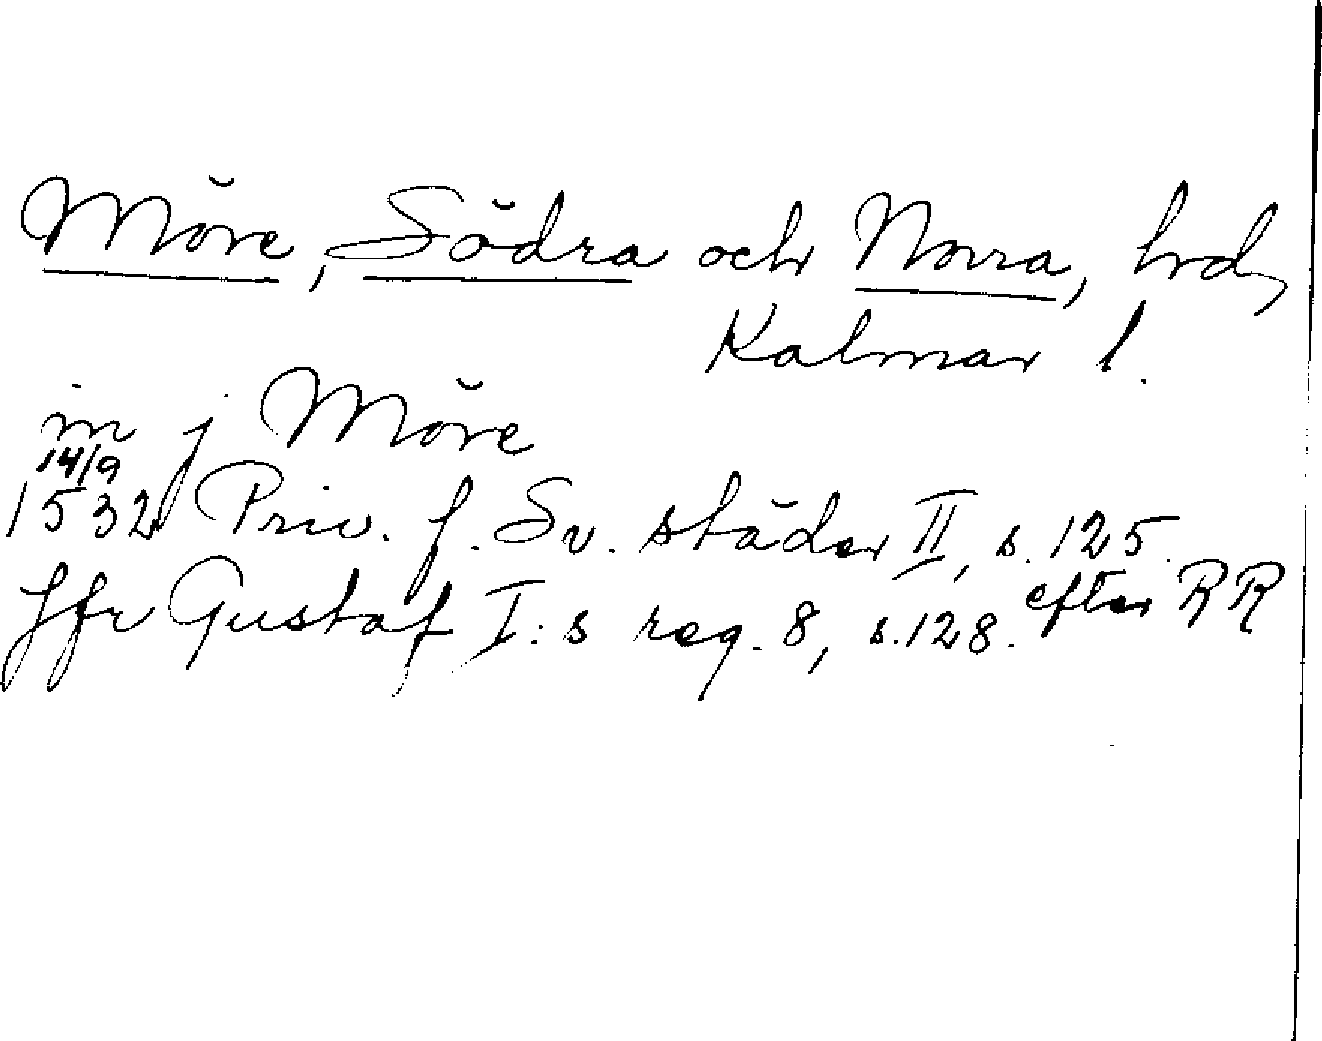 Möre, Södra och Norra, hrd,
Kalmar l.
in j Möre
14/9
1532 Priv. f. Sv. städer II, s. 125.
Jfr Gustaf I:s reg. 8, s. 128. efter RR